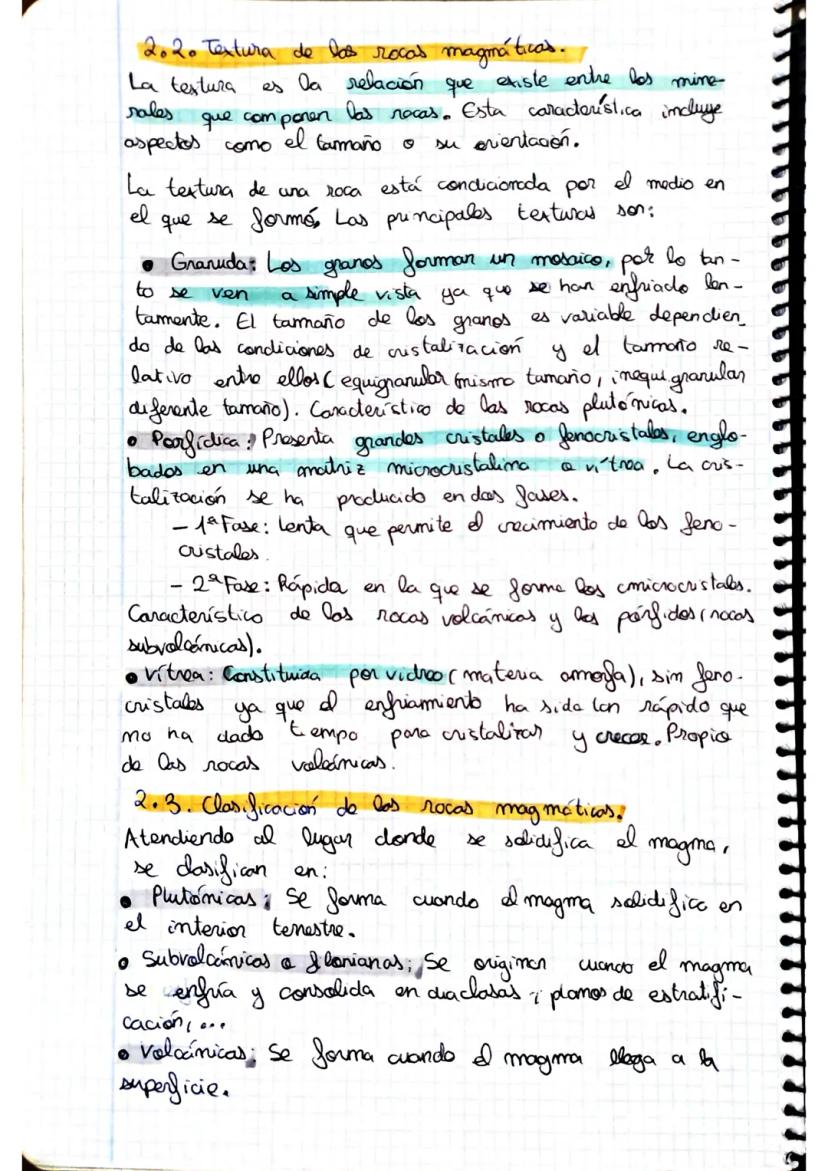 2.2. Textura de las rocas magmáticas.
La textura es la relación que existe entre los mine-
rales que componen las rocas. Esta característica incluye
aspectos como el tamaño o su orientación.
La textura de una roca está condicionada por el medio en
el que se formó. Las principales texturas son:
• Granuda: Los granos forman un mosaico, por lo tan-
to se ven a simple vista ya que se han enfriado len-
tamente. El tamaño de los granos es variable dependien
do de las condiciones de cristalización y el tamaño re-
lativo entre ellos (equigranular (mismo tamaño, inequigranular
diferente tamaño). Característico de las rocas plutónicas.
• Porfídica: Presenta grandes cristales o fenocristales, englo-
bados en una matriz microcristalina o vítrea. La cris-
talización se ha producido en dos fases.
- 1ª Fase: Lenta que permite el crecimiento de los feno-
cristales.
- 2ª Fase: Rápida en la que se forma los microcristales.
Característico de las rocas volcánicas y los pórfidos (rocas
subvolcánicas).
• Vítrea: Constituida por vidrio (materia amorfa), sin feno-
cristales ya que el enfriamiento ha sido tan rápido que
no ha dado tiempo para cristalizar y crecer. Propio
de las rocas volcánicas.
2.3. Clasificación de las rocas magmáticas.
Atendiendo al lugar donde se solidifica el magma,
se clasifican en:
• Plutónicas: Se forma cuando el magma solidifica en
el interior terrestre.
• Subvolcánicas o filonianas: Se originan cuando el magma
se enfría y consolida en diaclasas, planos de estratifi-
cación, ...
• Volcánicas: Se forma cuando el magma llega a la
superficie.